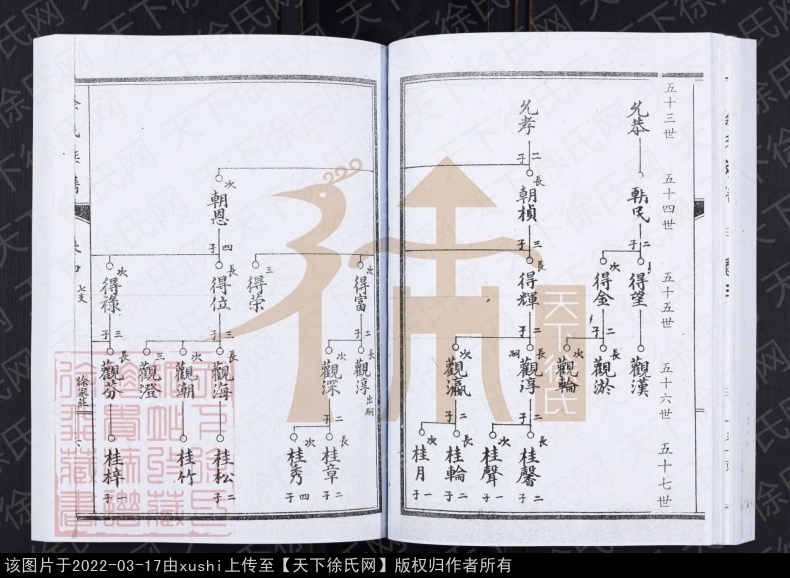 五十三世
五十四世
五十五世
五十六世
五十七世
允恭
朝民
二子
得望
觀漢
次
得金
二子
觀淤
觀輪
允孝
二子
長
朝楨
三子
長
得輝
二子
嗣
觀淳
二子
長
桂馨
二子
次
桂聲
二子
次
觀瀛
二子
長
桂輪
二子
次
桂月
一子
次
得富
二子
長
觀淳
出嗣
次
觀深
二子
長
桂章
二子
次
桂秀
四子
三
得榮
次
朝恩
四子
長
得位
三子
長
觀海
桂松
二子
次
觀朝
桂竹
三
觀澄
次
得祿
三子
長
觀芬
桂梓
一子
七支
徐家莊
天下徐氏
天下徐氏网
该图片于2022-03-17由xushi上传至【天下徐氏网】版权归作者所有